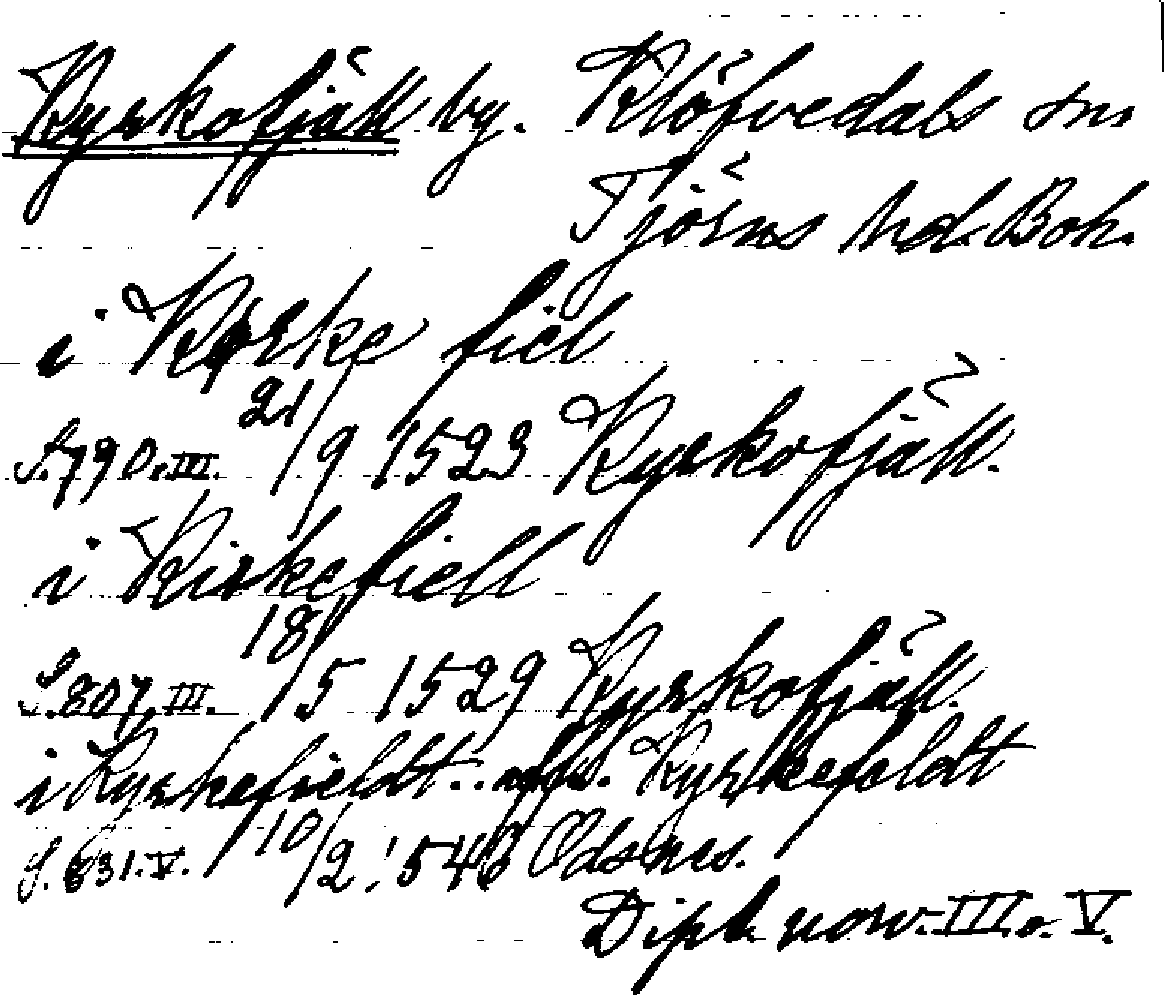 Kyrkofjäll by. Klöfvedals sn
Tjörns hd. Boh.
i Kørke fiel
S. 790. III. 21/9 1523 Kyrkofjäll.
i Kirkefiell
S. 807. III. 18/5 1529 Kyrkofjäll.
i Kyrkefieldt.. Kyrkefieldt
S. 831. V. 10/2 1546 Odsnes.
Dipl. norv. III o. V.